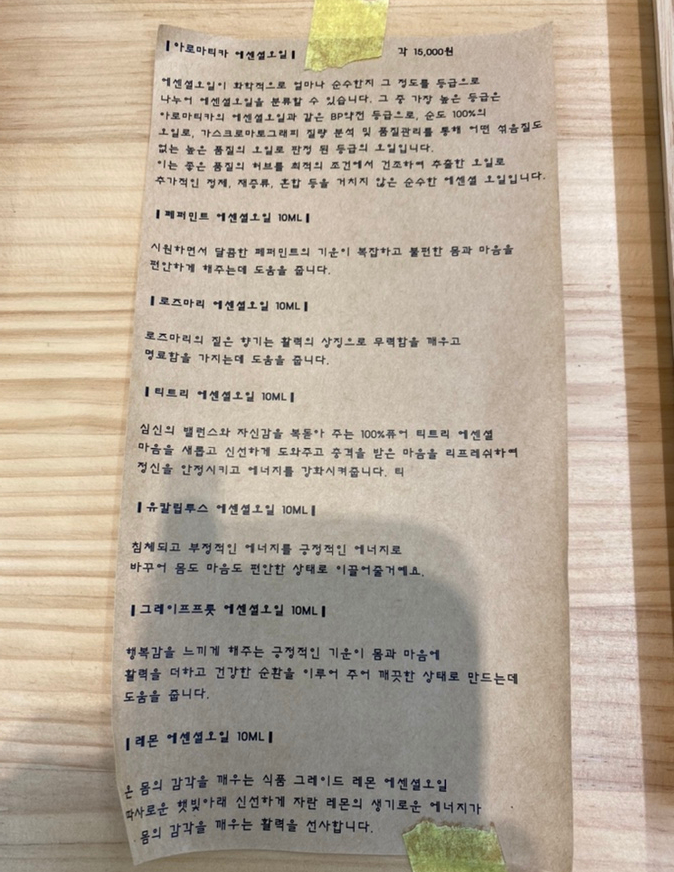 [아로마티카 에센셜오일] 각 15,000원
에센셜오일이 화학적으로 얼마나 순수한지 그 정도를 등급으로
나누어 에센셜오일을 분류할 수 있습니다. 그 중 가장 높은 등급은
아로마티카의 에센셜오일과 같은 BP약전 등급으로, 순도 100%의
오일로, 가스크로마토그래피 질량 분석 및 품질관리를 통해 어떤 섞음질도
없는 높은 품질의 오일로 판정 된 등급의 오일입니다.
이는 좋은 품질의 허브를 최적의 조건에서 건조하여 추출한 오일로
추가적인 정제, 재증류, 혼합 등을 거치지 않은 순수한 에센셜 오일입니다.
[페퍼민트 에센셜오일 10ML]
시원하면서 달콤한 페퍼민트의 기운이 복잡하고 불편한 몸과 마음을
편안하게 해주는데 도움을 줍니다.
[로즈마리 에센셜오일 10ML]
로즈마리의 짙은 향기는 활력의 상징으로 무력함을 깨우고
명료함을 가지는데 도움을 줍니다.
[티트리 에센셜오일 10ML]
심신의 밸런스와 자신감을 복돋아 주는 100%퓨어 티트리 에센셜
마음을 새롭고 신선하게 도와주고 충격을 받은 마음을 리프레쉬하여
정신을 안정시키고 에너지를 강화시켜줍니다. 티
[유칼립투스 에센셜오일 10ML]
침체되고 부정적인 에너지를 긍정적인 에너지로
바꾸어 몸도 마음도 편안한 상태로 이끌어줄거예요.
[그레이프프룻 에센셜오일 10ML]
행복감을 느끼게 해주는 긍정적인 기운이 몸과 마음에
활력을 더하고 건강한 순환을 이루어 주어 깨끗한 상태로 만드는데
도움을 줍니다.
[레몬 에센셜오일 10ML]
은 몸의 감각을 깨우는 식품 그레이드 레몬 에센셜오일
따사로운 햇빛아래 신선하게 자란 레몬의 생기로운 에너지가
몸의 감각을 깨우는 활력을 선사합니다.